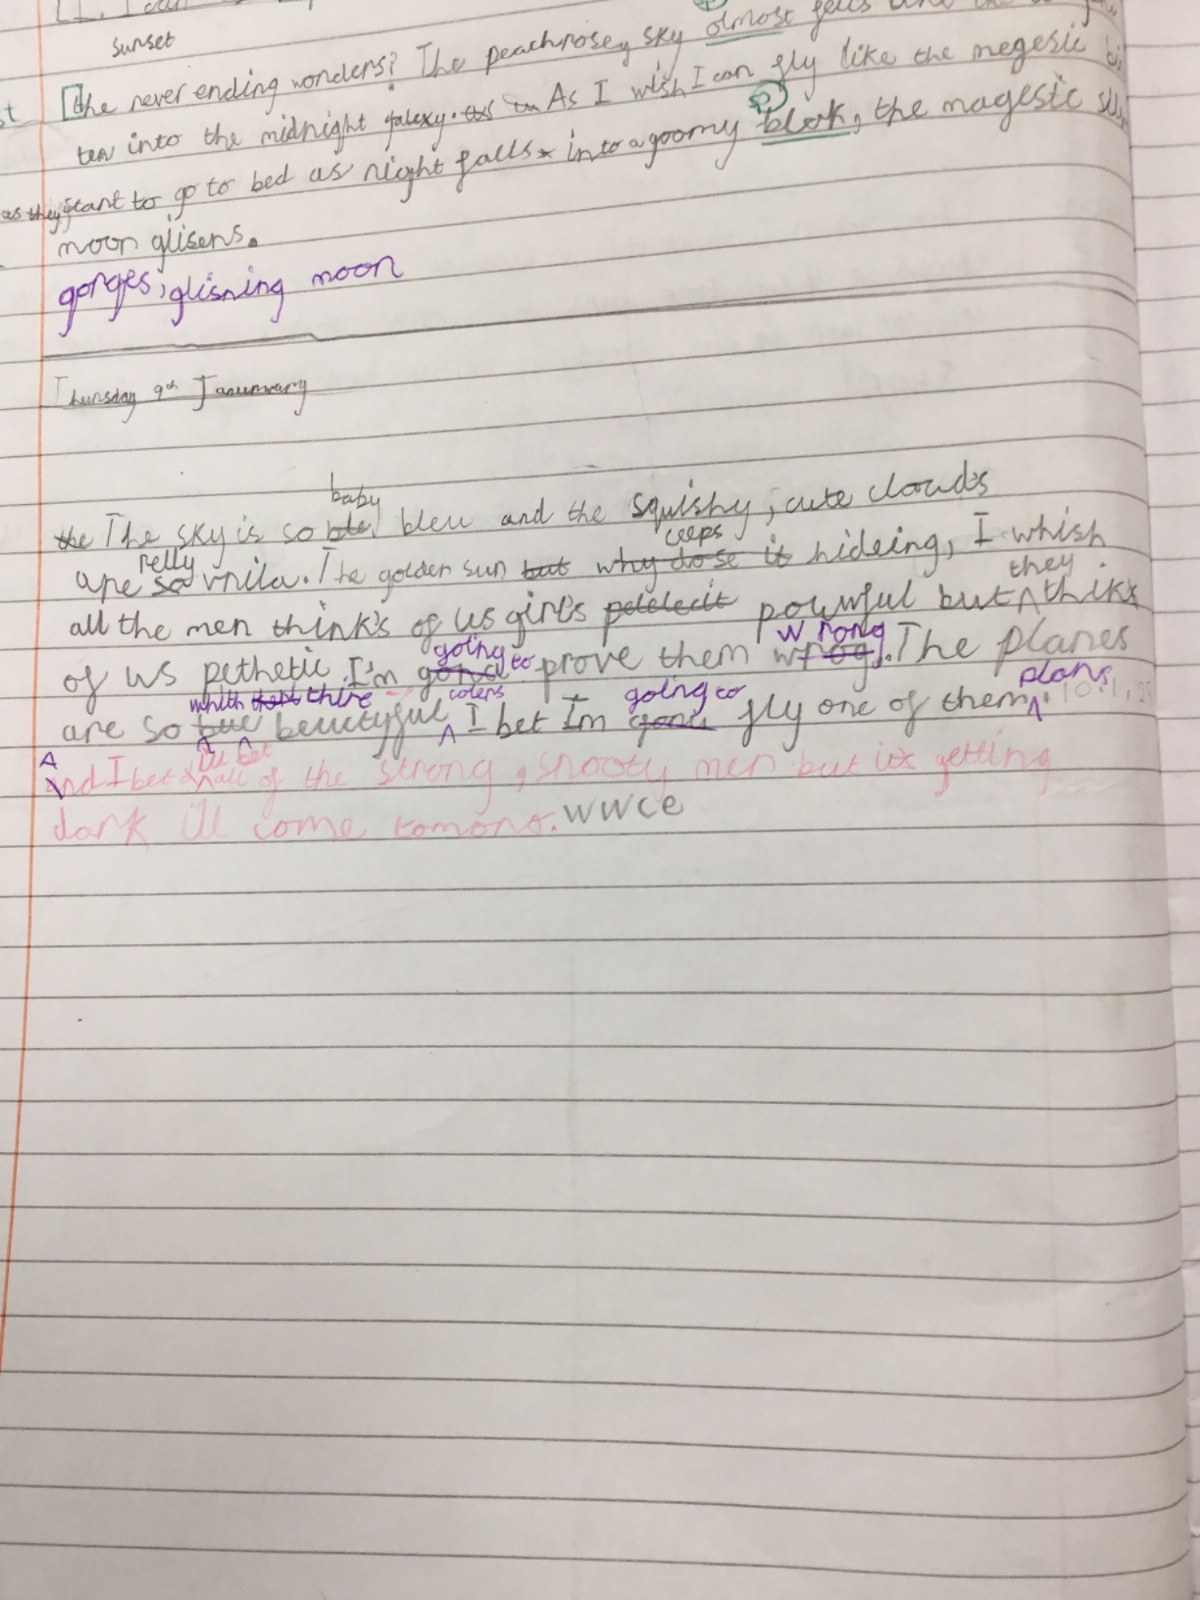 sunset
the never ending wonders? The peachrosey sky almost falls
ten into the midnight galexy. As I wish I can fly like the megesic
as they start to go to bed as night falls into a goomy blak, the magesic
sp
moon glisens.
gorges, glisning moon
Thursday 9th Janunwary
baby
the The sky is so bleu and the squishy, cute clouds
relly ceeps
are so vnila. The golden sun but why dose it hideing, I whish
they
all the men think's of us girls powwful but thinks
going to wrong
of us pethetic. I'm prove them. The planes
whith there colers going to plans
are so beuutyful I bet Im fly one of them. 10.1.
A ill bet
And I bet all of the strong, snooty men but it's getting
dark ill come tomoro. WWCE